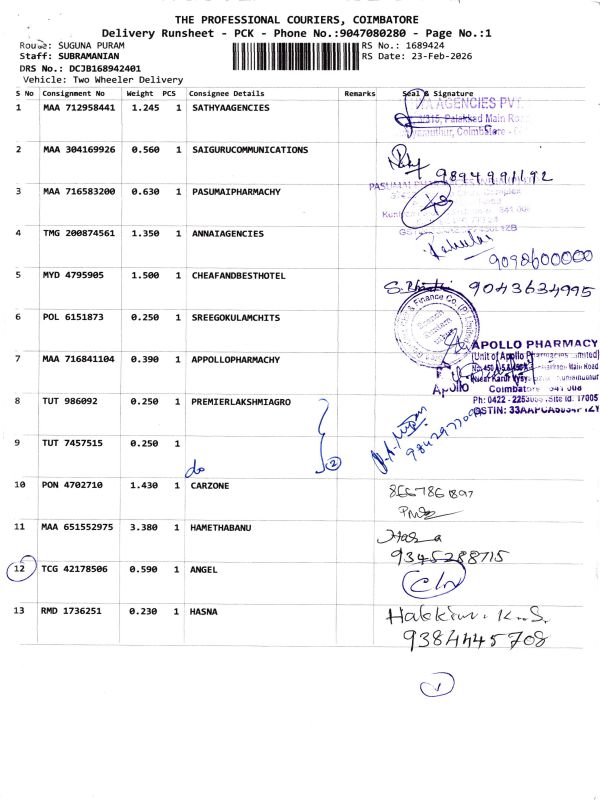 THE PROFESSIONAL COURIERS, COIMBATORE
Delivery Runsheet - PCK - Phone No.:9047080280 - Page No.:1
Route: SUGUNA PURAM
RS No.: 1689424
Staff: SUBRAMANIAN
RS Date: 23-Feb-2026
DRS No.: DCJB168942401
Vehicle: Two Wheeler Delivery
S No Consignment No Weight PCS Consignee Details Remarks Seal & Signature
1 MAA 712958441 1.245 1 SATHYAAGENCIES
AGENCIES PVT
Palakkad Main Road
2 MAA 304169926 0.560 1 SAIGURUCOMMUNICATIONS
9894991192
3 MAA 716583200 0.630 1 PASUMAIPHARMACHY
4 TMG 200874561 1.350 1 ANNAIAGENCIES
9098600000
5 MYD 4795905 1.500 1 CHEAFANDBESTHOTEL
9043634995
6 POL 6151873 0.250 1 SREEGOKULAMCHITS
& Finance Co.(P) Limited
7 MAA 716841104 0.390 1 APPOLLOPHARMACHY
APOLLO PHARMACY
(Unit of Apollo Pharmacies Limited)
Apollo Coimbatore
Ph: 0422 - Site Id. 17005
8 TUT 986092 0.250 1 PREMIERLAKSHMIAGRO
9 TUT 7457515 0.250 1
do
2
10 PON 4702710 1.430 1 CARZONE
8667861897
11 MAA 651552975 3.380 1 HAMETHABANU
9345288715
12 TCG 42178506 0.590 1 ANGEL
13 RMD 1736251 0.230 1 HASNA
K.S.
9384445708
1